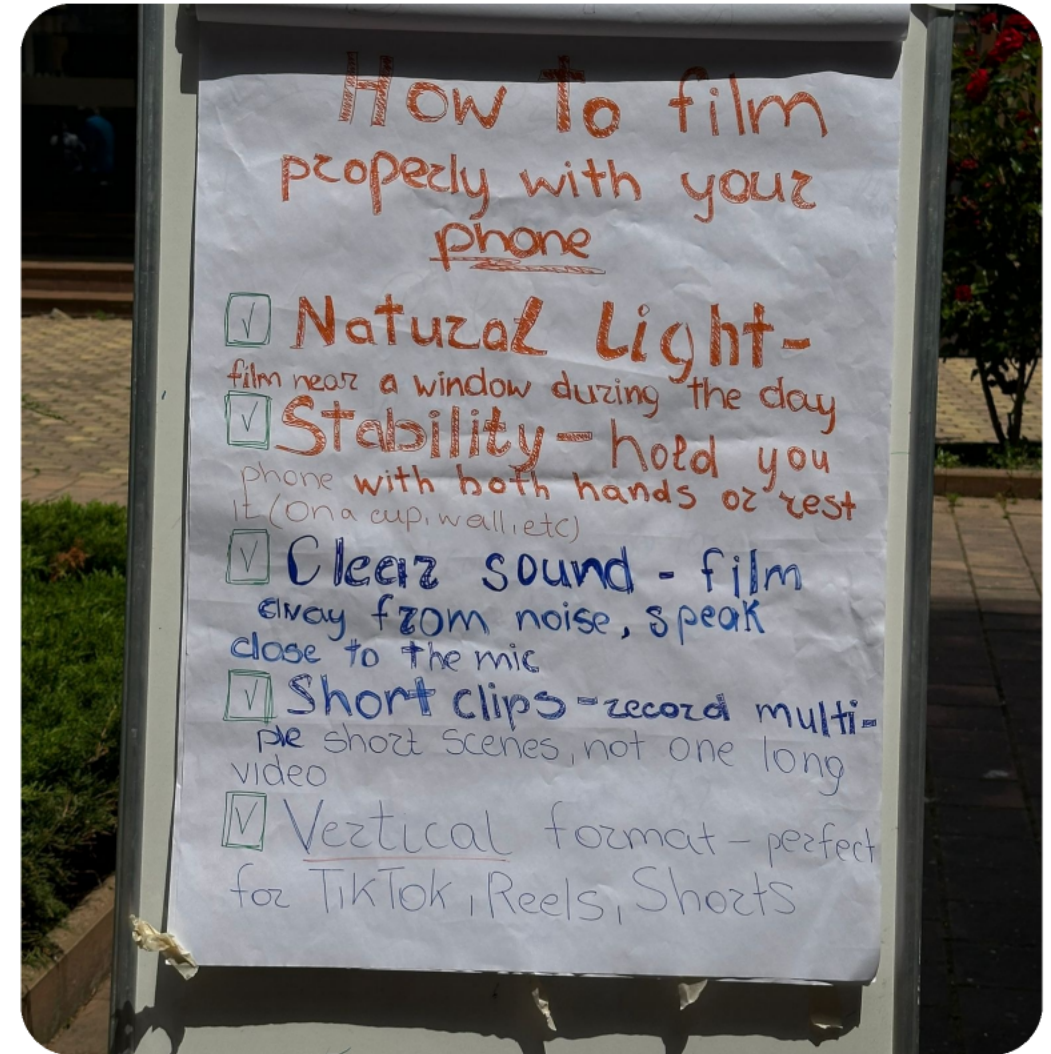 How to film
properly with your
phone
Natural Light-
film near a window during the day
Stability - hold you
phone with both hands or rest
it (on a cup, wall, etc)
Clear sound - film
away from noise, speak
close to the mic
Short clips - record multi-
ple short scenes, not one long
video
Vertical format - perfect
for TikTok, Reels, Shorts